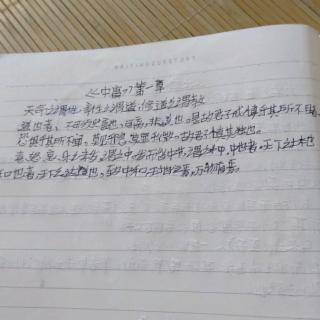 《中庸》第一章
天命之谓性，率性之谓道，修道之谓教
道也者，不可须臾离也，可离，非道也。是故君子戒慎乎其所不睹
恐惧乎其所不闻。莫见乎隐，莫显乎微。故君子慎其独也。
喜怒哀乐之未发，谓之中，发而皆中节，谓之和，中也者，天下之大本也
和也者，天下之达道也，致中和，天地位焉，万物育焉。